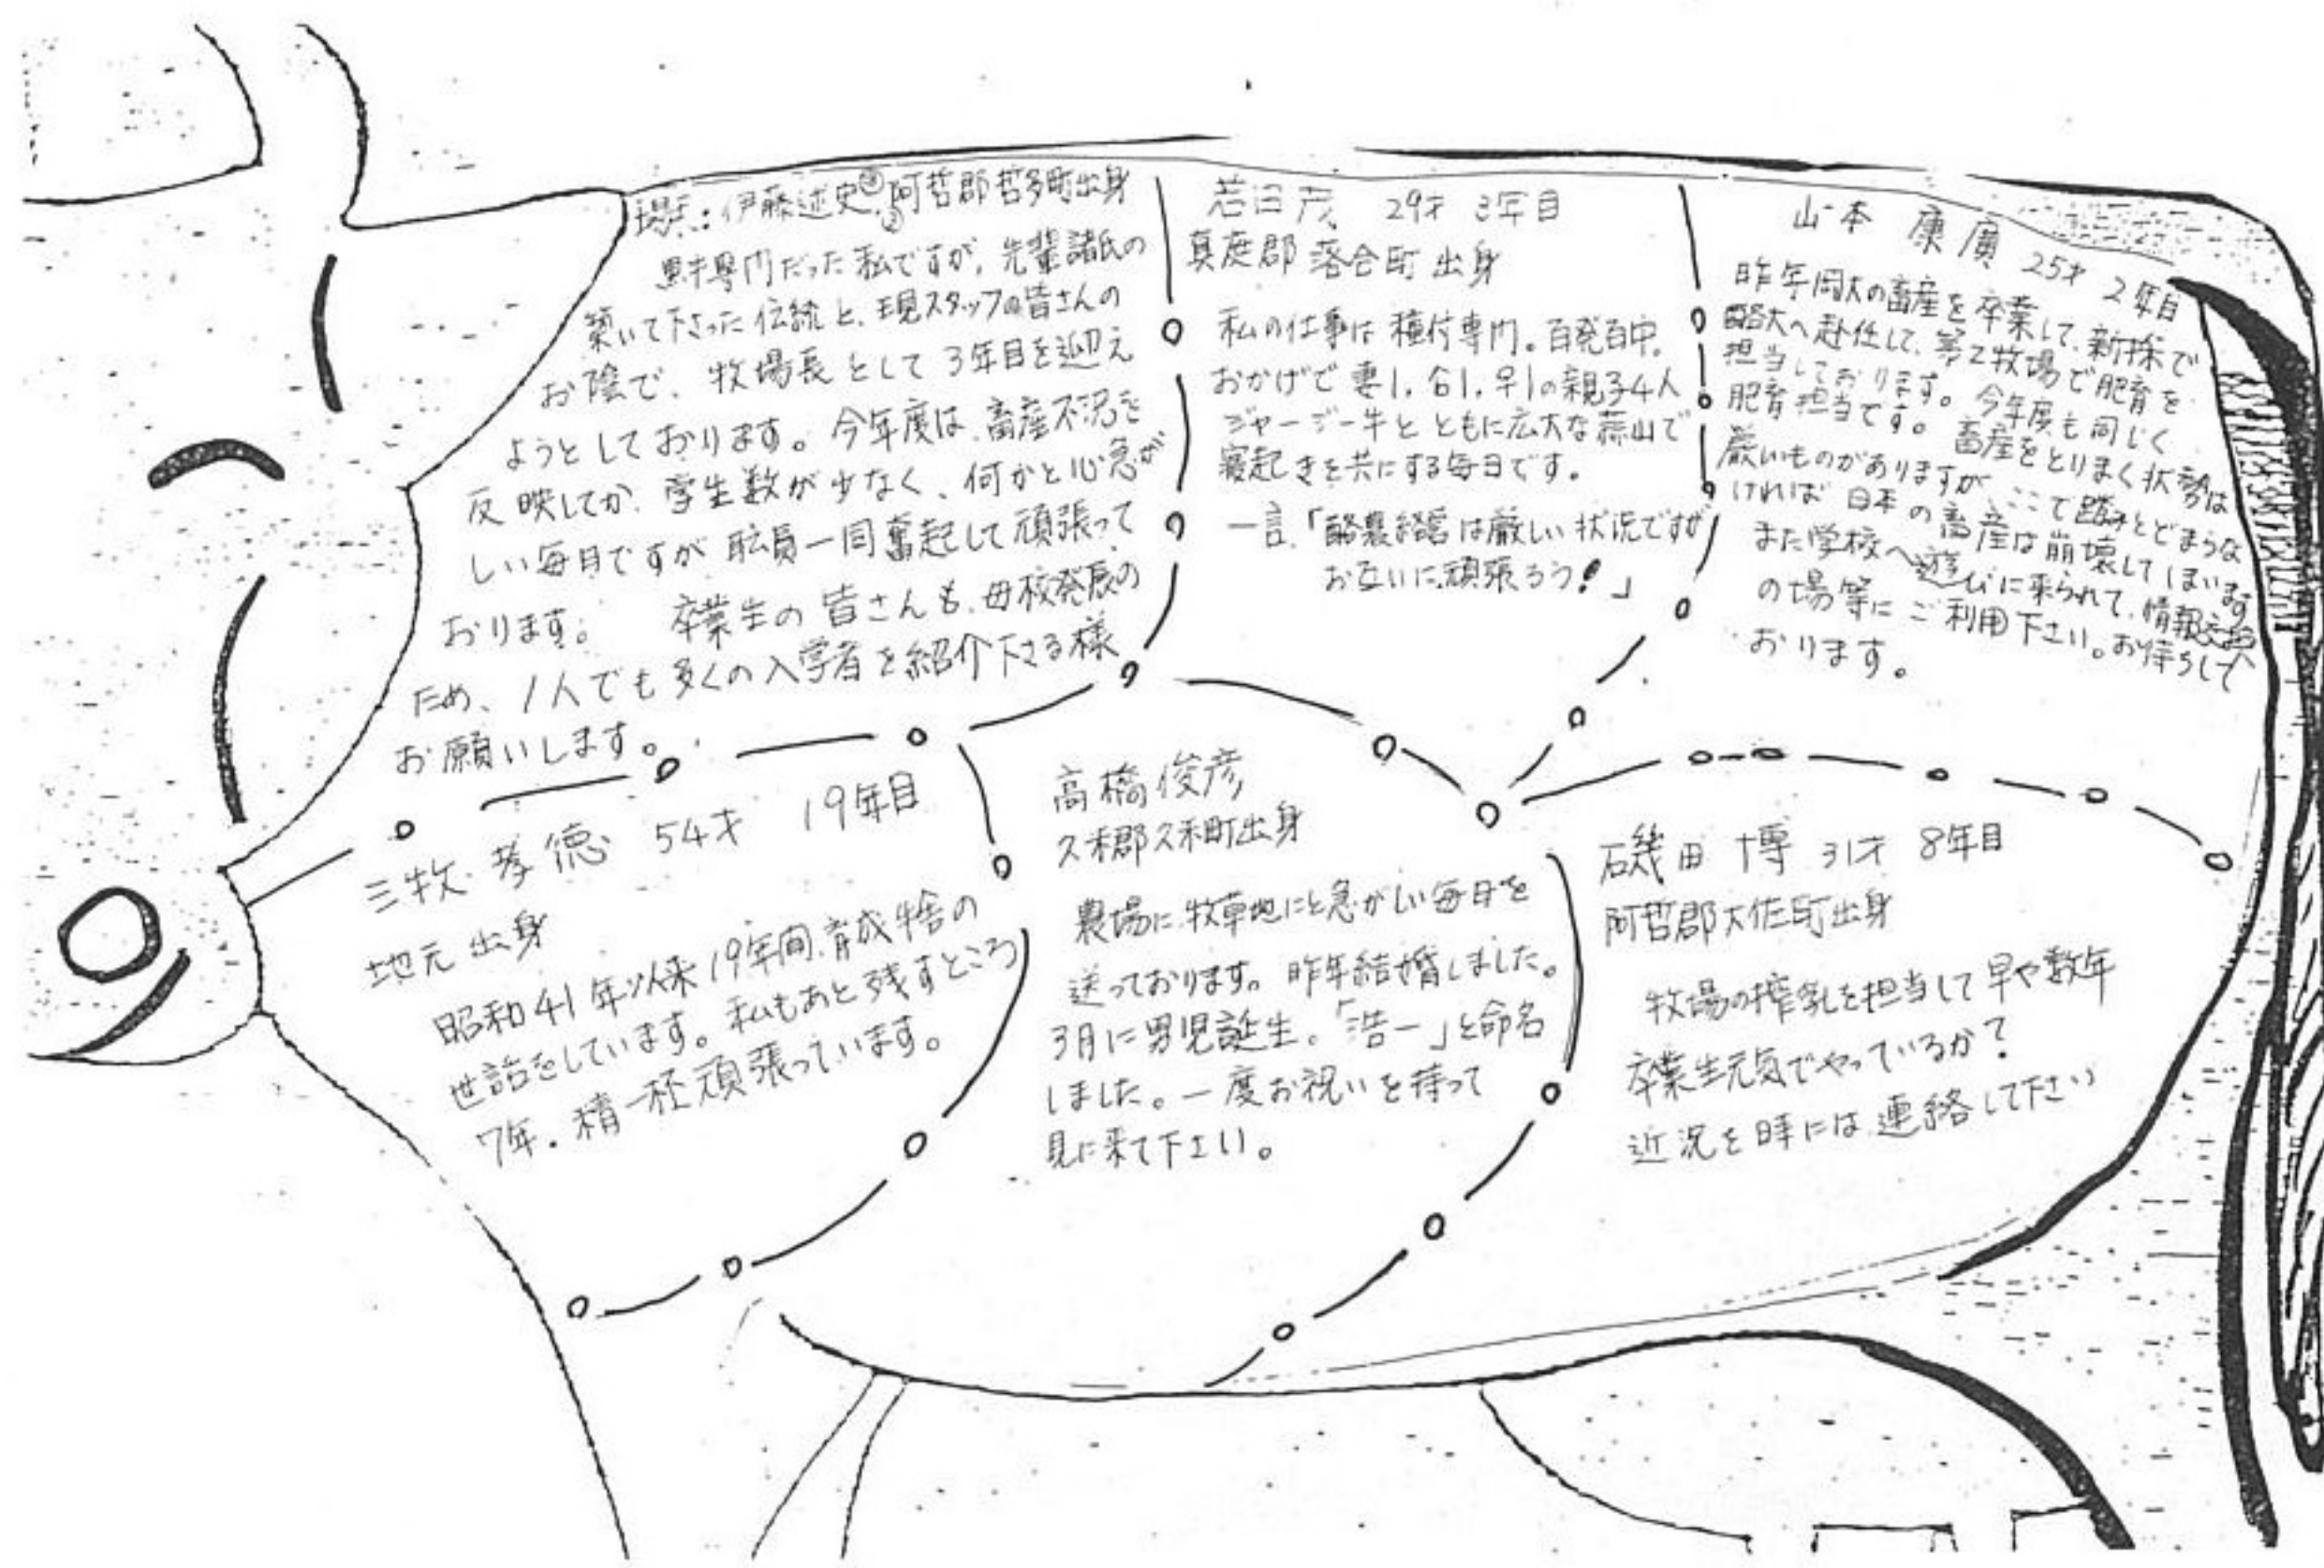 場長：伊藤述史 阿哲郡哲多町出身
専門だった私ですが、先輩諸氏の
築いて下さった伝統と、現スタッフの皆さんの
お陰で、牧場長として3年目を迎え
ようとしております。今年度は、畜産不況を
反映してか、学生数が少なく、何かと心急が
しい毎日ですが職員一同奮起して頑張って
おります。 卒業生の皆さんも、母校発展の
ため、1人でも多くの入学者を紹介下さる様
お願いします。
29才 3年目
真庭郡落合町出身
私の仕事は種付専門。百発百中。
おかげで妻1, 合1, 早1の親子4人
ジャージー牛とともに広大な蒜山で
寝起きを共にする毎日です。
一言「酪農経営は厳しい状況ですが
お互いに頑張ろう！」
山本 康廣 25才 2年目
昨年岡大の畜産を卒業して、新採で
酪大へ赴任して、第2牧場で肥育を
担当しております。今年度も同じく
肥育担当です。畜産をとりまく状勢は
厳しいものがありますが、ここで踏みとどまらな
ければ日本の畜産は崩壊してしまいます。
また学校へ遊びに来られて、情報交換
の場等にご利用下さい。お待ちして
おります。
三牧 孝徳 54才 19年目
地元出身
昭和41年以来19年間、育成牛舎の
世話をしています。私もあと残すところ
7年。精一杯頑張っています。
高橋俊彦
久米郡久米町出身
農場に、牧草地にと急がしい毎日を
送っております。昨年結婚しました。
3月に男児誕生。「浩一」と命名
しました。一度お祝いを持って
見に来て下さい。
磯田 博 31才 8年目
阿哲郡大佐町出身
牧場の搾乳を担当して早や数年
卒業生元気でやっているか？
近況を時には連絡して下さい